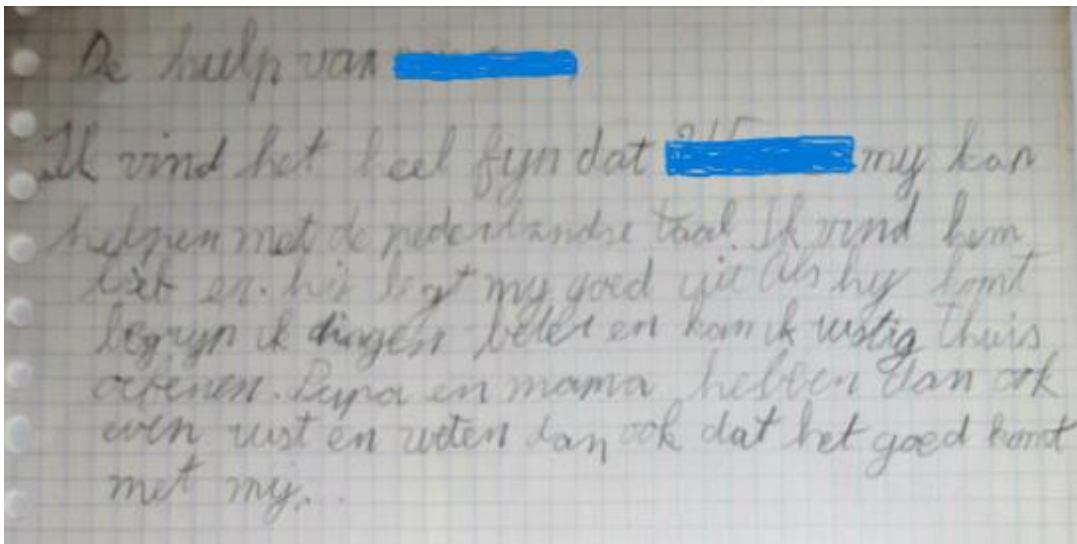 De hulp van
Ik vind het heel fyn dat my kan
helpen met de nederlandse taal. Ik vind hem
lief en hij legt my goed uit Als hy komt
begryp ik dingen beter en kan ik rustig thuis
oefenen. Papa en mama hebben dan ook
even rust en weten dan ook dat het goed komt
met my.